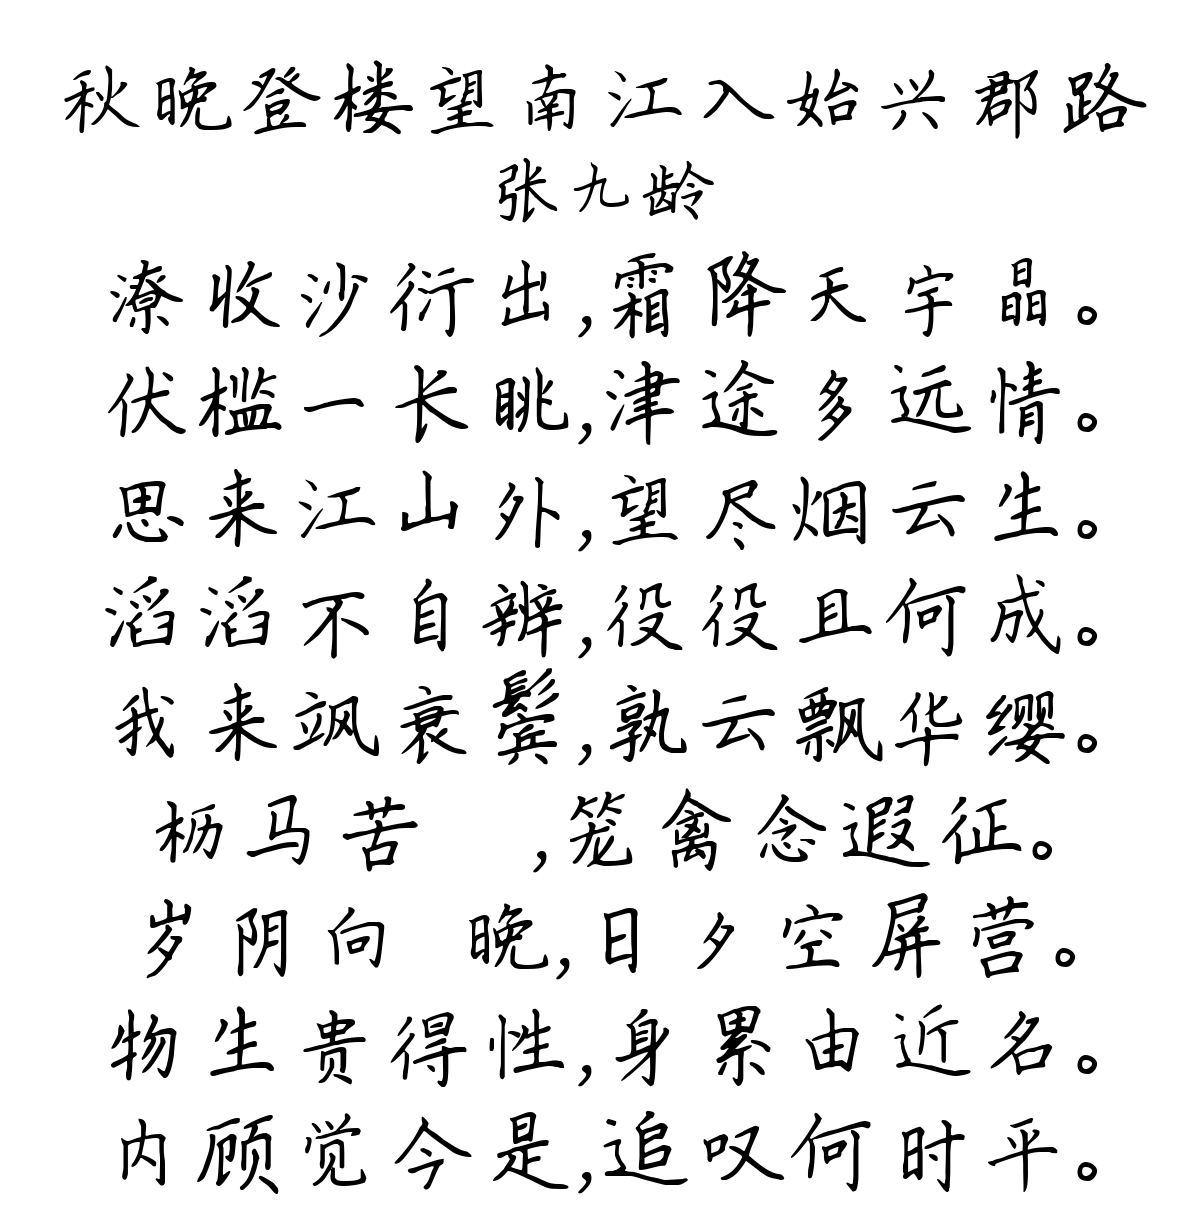 秋晚登楼望南江入始兴郡路
张九龄
潦收沙衍出,霜降天宇晶。
伏槛一长眺,津途多远情。
思来江山外,望尽烟云生。
滔滔不自辨,役役且何成。
我来飒衰鬓,孰云飘华缨。
枥马苦 ,笼禽念遐征。
岁阴向 晚,日夕空屏营。
物生贵得性,身累由近名。
内顾觉今是,追叹何时平。